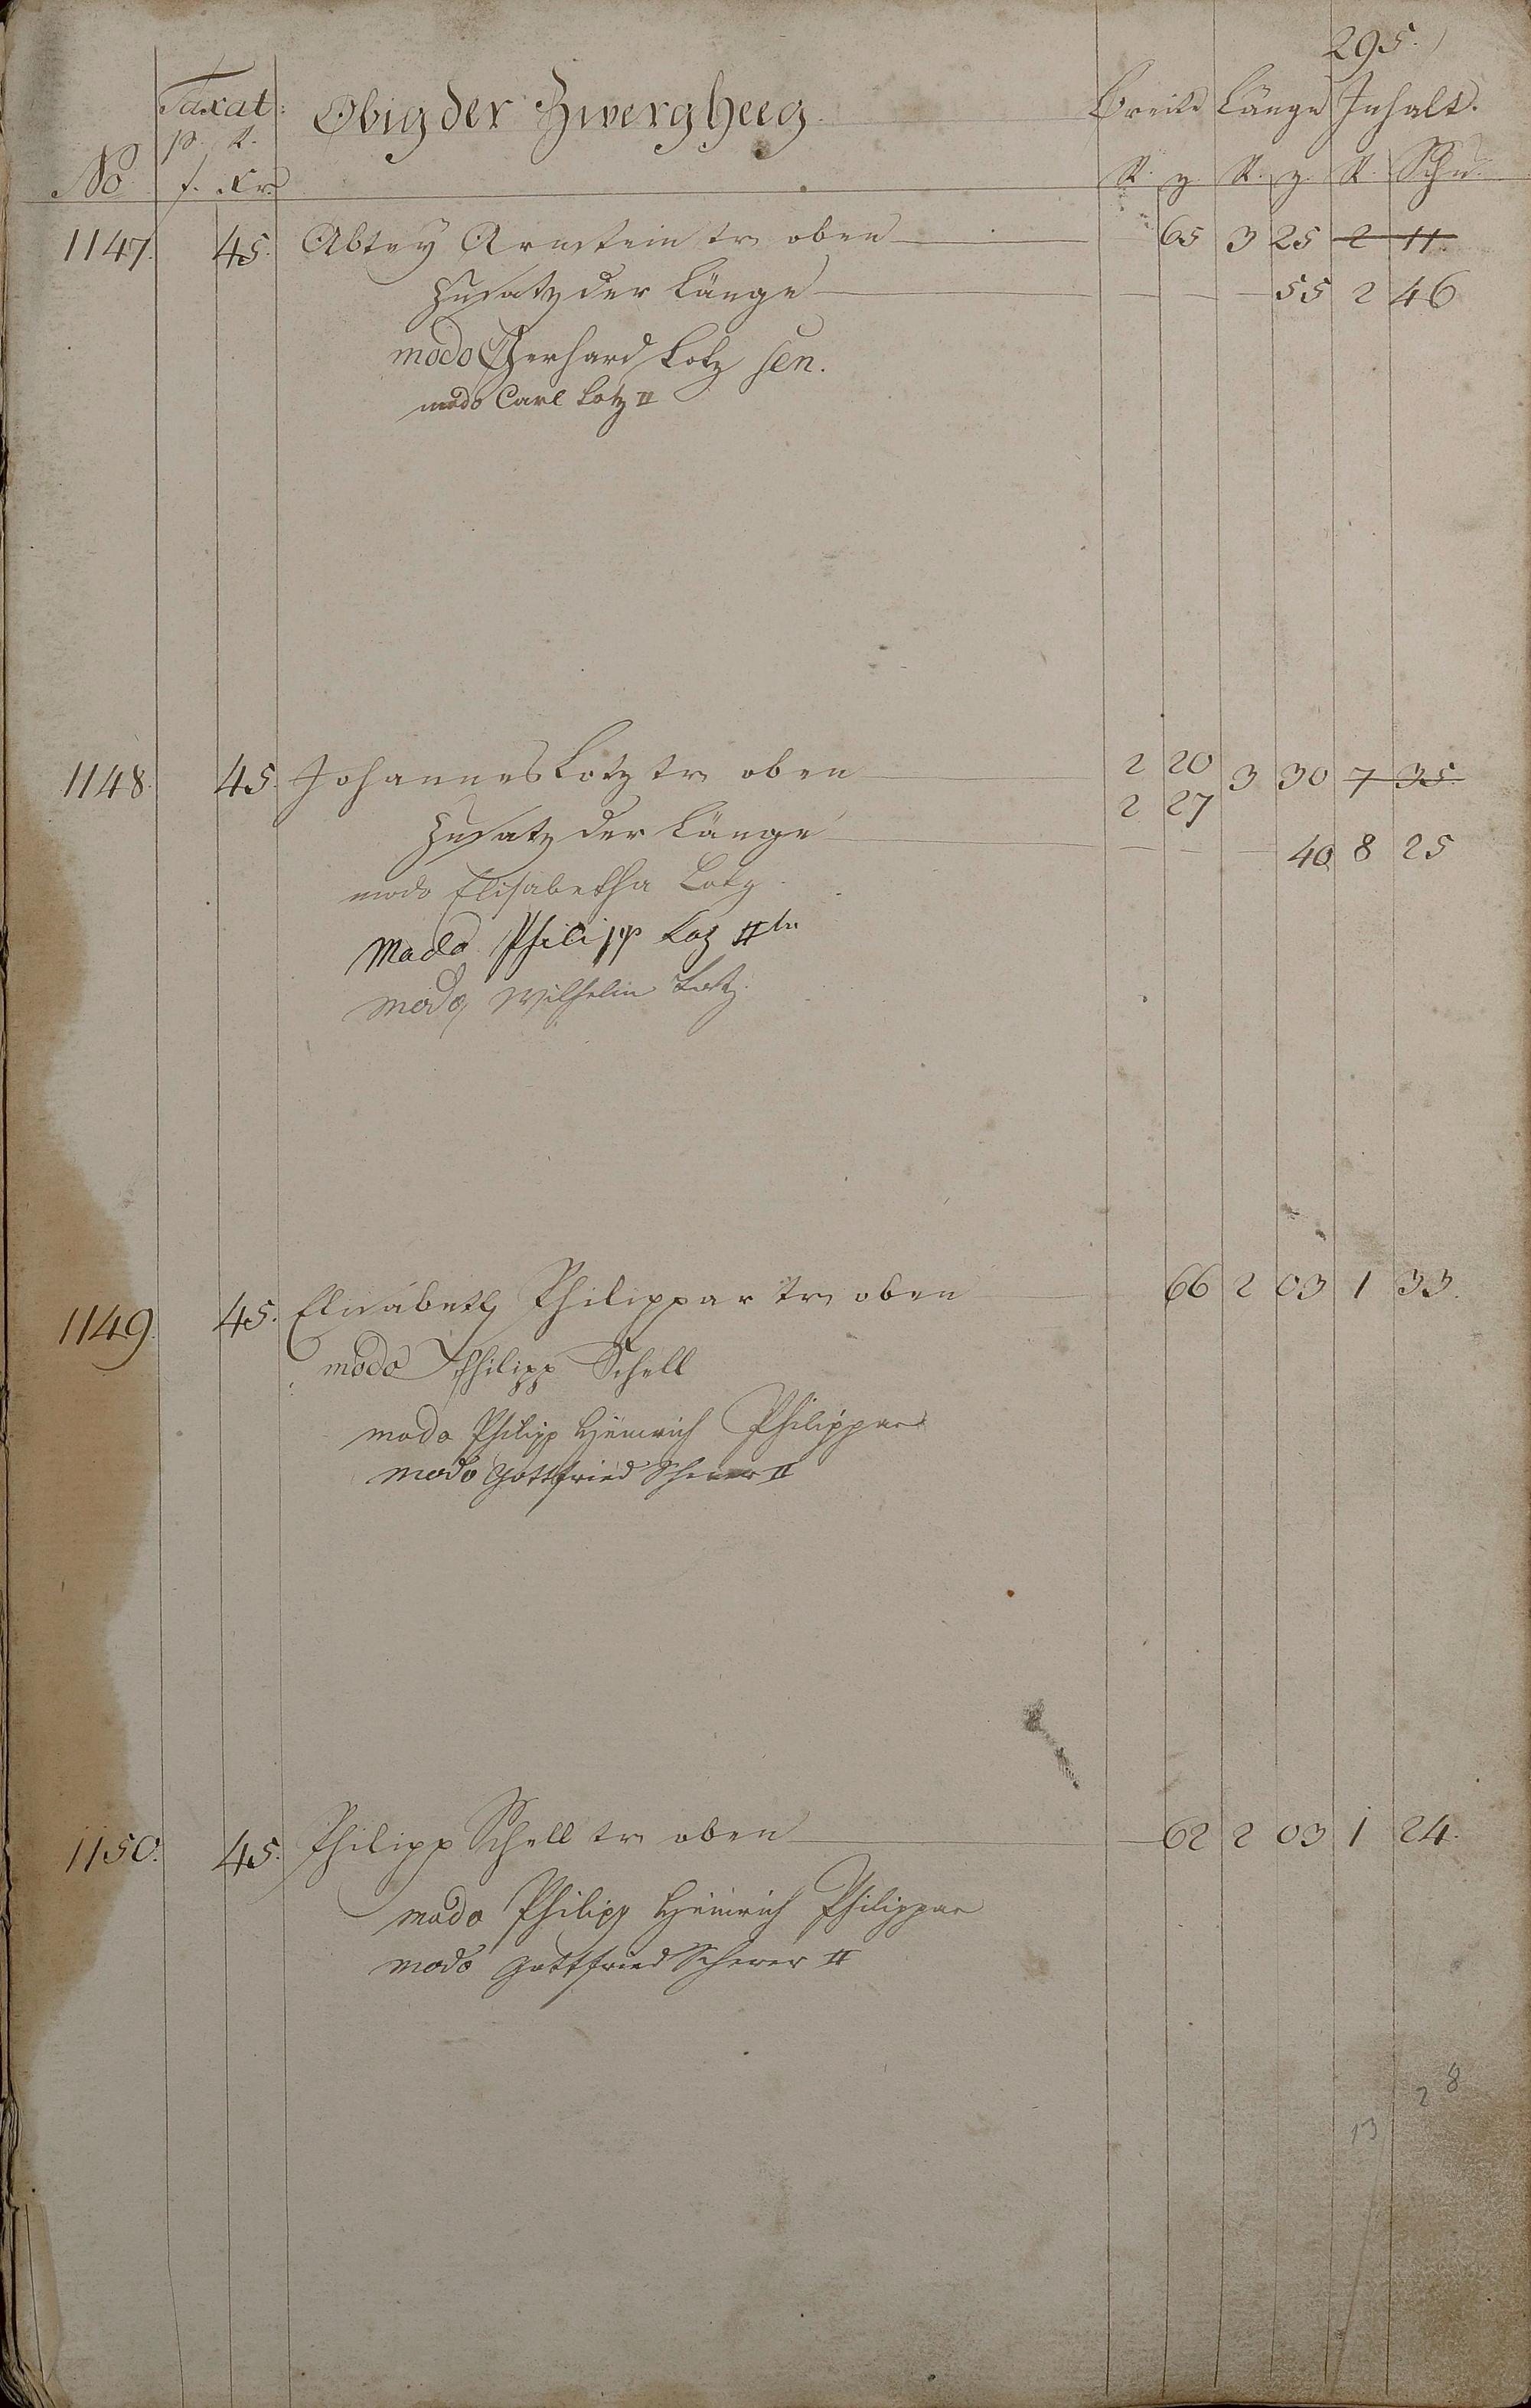 295.
Taxat: Obig der Zwergheeg. Breite Länge Inhalt.
p. R.
No f. Kr. R. z. R. z. R. Schu
1147. 45. Abtey Arnstein tr. oben 65 3 25 2 11.
Zusatz der Länge 55 2 46
modo Gerhard Lotz sen.
modo Carl Lotz II
1148. 45. Johannes Lotz tr. oben 2 20 3 30 7 35.
2 27
Zusatz der Länge 40 8 25
modo Elisabetha Lotz.
Modo Philipp Lotz IItr
modo Wilhelm Lotz.
1149. 45. Elisabeth Philippar tr. oben 66 2 03 1 33.
modo Philipp Schell
modo Philipp Heinrich Philippar
modo Gottfried Scherer II
1150. 45. Philipp Schell tr. oben 62 2 03 1 24.
modo Philipp Heinrich Philippar
modo Gottfried Scherer II
2 8
13